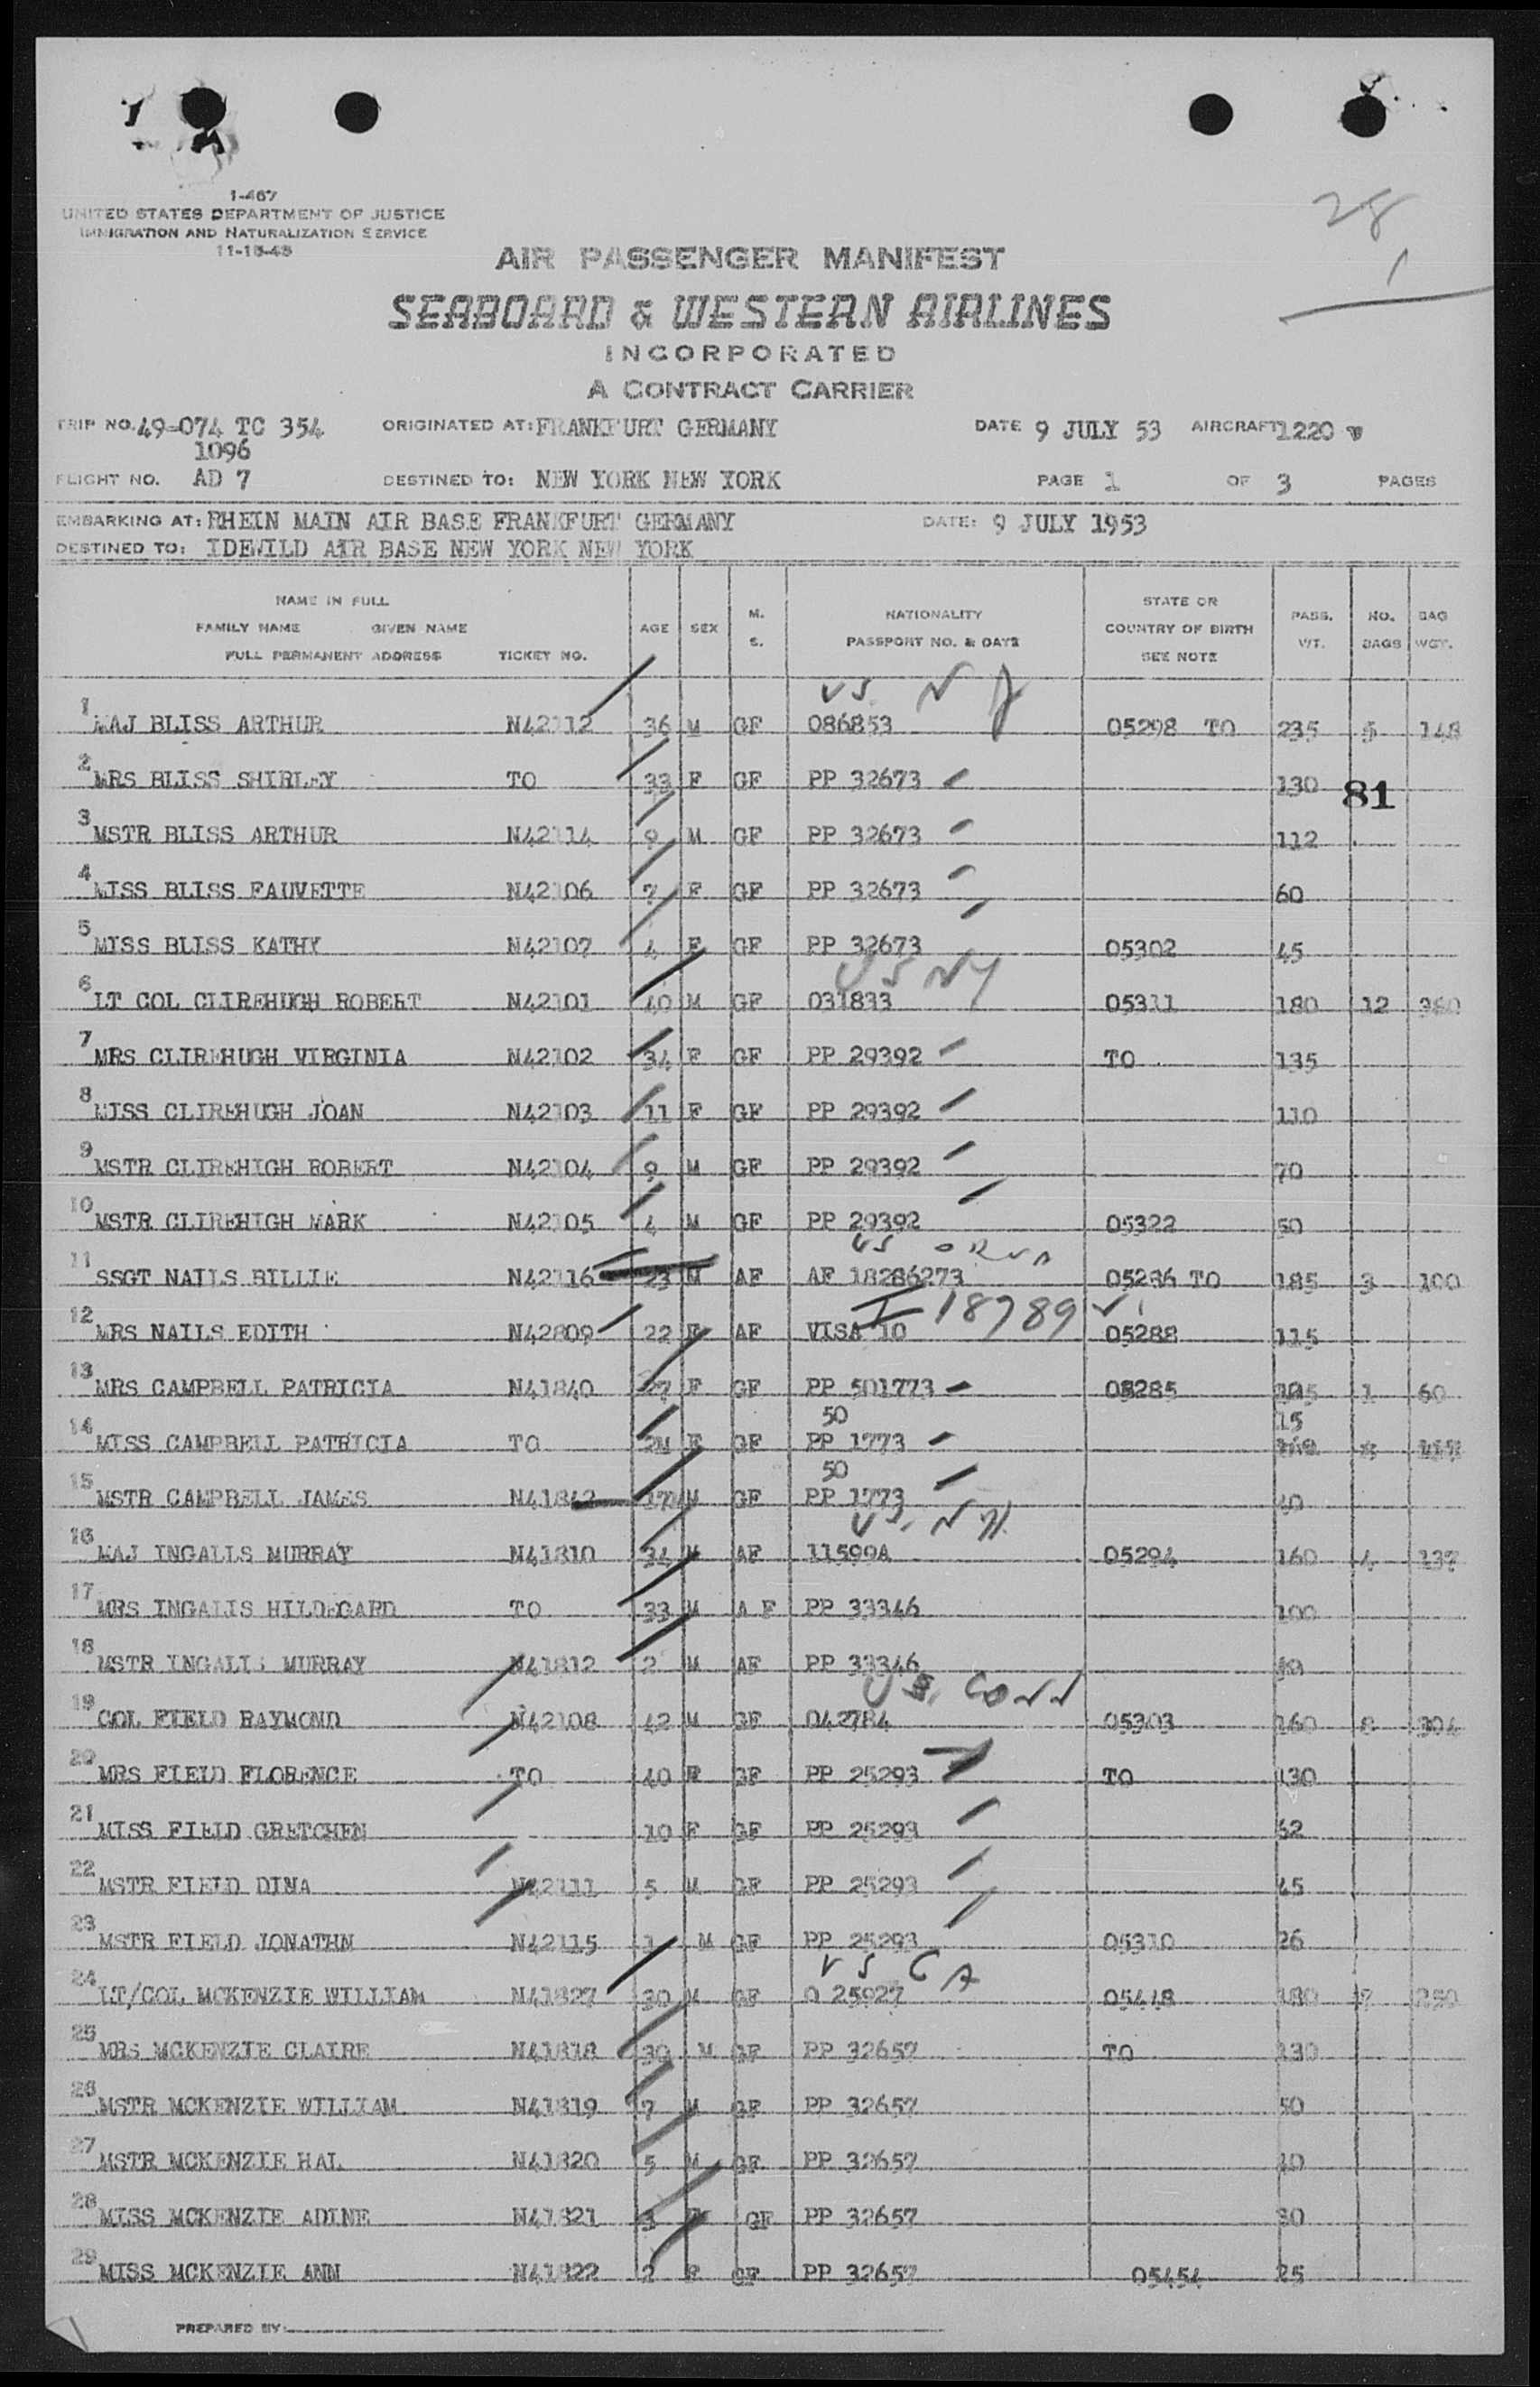 1-467
UNITED STATES DEPARTMENT OF JUSTICE
IMMIGRATION AND NATURALIZATION SERVICE
11-15-48
28
1
AIR PASSENGER MANIFEST
SEABOARD & WESTERN AIRLINES
INCORPORATED
A CONTRACT CARRIER
TRIP NO. 49-074 TC 354 ORIGINATED AT: FRANKFURT GERMANY DATE 9 JULY 53 AIRCRAFT 1220
1096
FLIGHT NO. AD 7 DESTINED TO: NEW YORK NEW YORK PAGE 1 OF 3 PAGES
EMBARKING AT: RHEIN MAIN AIR BASE FRANKFURT GERMANY DATE: 9 JULY 1953
DESTINED TO: IDEWILD AIR BASE NEW YORK NEW YORK
NAME IN FULL
FAMILY NAME GIVEN NAME
FULL PERMANENT ADDRESS TICKET NO. AGE SEX M. S. NATIONALITY PASSPORT NO. & DATE STATE OR COUNTRY OF BIRTH SEE NOTE PASS. WT. NO. BAGS BAG WGT.
US NJ
1 MAJ BLISS ARTHUR N42112 36 M GF 086853 05298 TO 235 5 148
2 MRS BLISS SHIRLEY TO 33 F GF PP 32673 130
81
3 MSTR BLISS ARTHUR N42114 9 M GF PP 32673 112
4 MISS BLISS FAUVETTE N42106 7 F GF PP 32673 60
5 MISS BLISS KATHY N42107 4 F GF PP 32673 05302 45
US NY
6 LT COL CLIREHUGH ROBERT N42101 40 M GF 031833 05311 180 12 360
7 MRS CLIREHUGH VIRGINIA N42102 34 F GF PP 29392 TO 135
8 MISS CLIREHUGH JOAN N42103 11 F GF PP 29392 110
9 MSTR CLIREHIGH ROBERT N42104 9 M GF PP 29392 70
10 MSTR CLIREHIGH MARK N42105 4 M GF PP 29392 05322 50
US
11 SSGT NAILS BILLIE N42116 23 M AF AF 18286273 05286 TO 185 3 100
I-18989
12 MRS NAILS EDITH N42809 22 F AF VISA 10 05288 115
13 MRS CAMPBELL PATRICIA N41840 27 F GF PP 501773 05285 1 60
50 15
14 MISS CAMPBELL PATRICIA TO F GF PP 1773
50
15 MSTR CAMPBELL JAMES N41842 M GF PP 1773
US. NH
16 MAJ INGALLS MURRAY N41810 34 M AF 11599A 05294 160 4 137
17 MRS INGALIS HILDEGARD TO 33 M A F PP 33346 100
18 MSTR INGALIS MURRAY N41812 2 M AF PP 33346
US. CONN
19 COL FIELD RAYMOND N42108 42 M GF 042784 05303 160 8 304
20 MRS FIELD FLORENCE TO 40 F GF PP 25293 TO 130
21 MISS FIELD GRETCHEN 10 F GF PP 25293 62
22 MSTR FIELD DINA N42111 5 M GF PP 25293 45
23 MSTR FIELD JONATHN N42115 1 M GF PP 25293 05310 26
US GA
24 LT/COL MCKENZIE WILLIAM N41827 30 M GF O 25927 05448 180 7 250
25 MRS MCKENZIE CLAIRE N41818 30 M GF PP 32657 TO 130
26 MSTR MCKENZIE WILLIAM N41819 7 M GF PP 32657 50
27 MSTR MCKENZIE HAL N41820 5 M GF PP 32657 40
28 MISS MCKENZIE ADINE N41821 3 GF PP 32657 30
29 MISS MCKENZIE ANN N41822 2 F GF PP 32657 05454 25
PREPARED BY: